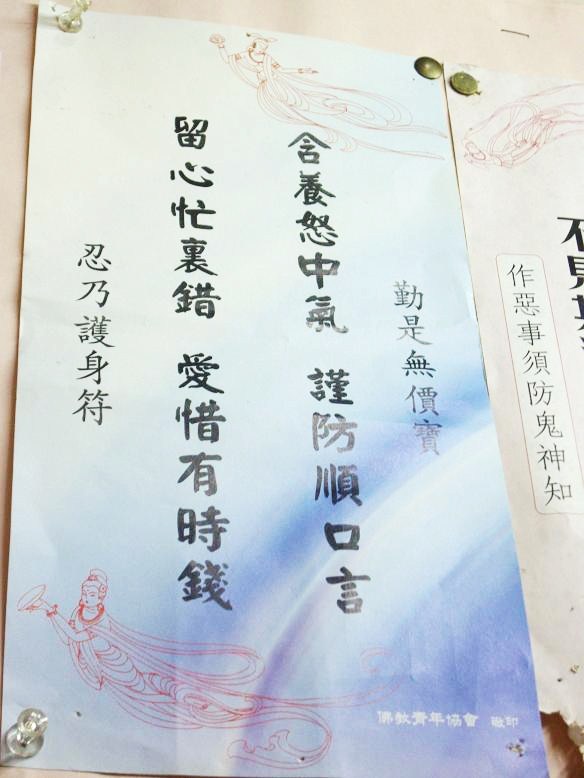 勤是無價寶
含養怒中氣 謹防順口言
留心忙裏錯 愛惜有時錢
忍乃護身符
佛教青年協會 敬印
作惡事須防鬼神知